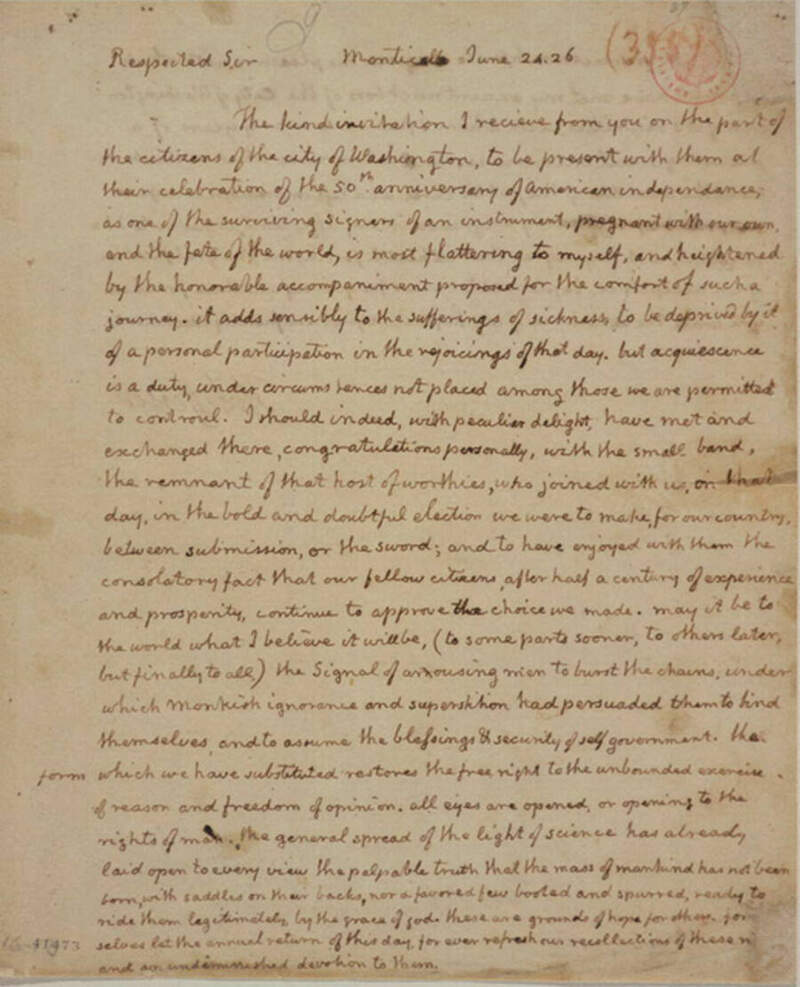 Respected Sir Monticello June 24. 26
(355)
The kind invitation I recieve from you on the part of
the citizens of the city of Washington, to be present with them at
their celebration of the 50th. anniversary of American independance;
as one of the surviving signers of an instrument, pregnant with our own,
and the fate of the world, is most flattering to myself, and heightened
by the honorable accompaniment proposed for the comfort of such a
journey. it adds sensibly to the sufferings of sickness, to be deprived by it
of a personal participation in the rejoicings of that day. but acquiescence
is a duty, under circumstances not placed among those we are permitted
to controul. I should indeed, with peculiar delight, have met and
exchanged there, congratulations personally, with the small band,
the remnant of that host of worthies, who joined with us, on that
day, in the bold and doubtful election we were to make, for our country,
between submission, or the sword; and to have enjoyed with them the
consolatory fact that our fellow citizens, after half a century of experience
and prosperity, continue to approve the choice we made. may it be to
the world what I believe it will be, (to some parts sooner, to others later,
but finally to all,) the Signal of arousing men to burst the chains, under
which Monkish ignorance and superstition had persuaded them to bind
themselves, and to assume the blessings & security of self government. the
form which we have substituted restores the free right to the unbounded exercise
of reason and freedom of opinion. all eyes are opened, or opening to the
rights of man. the general spread of the light of science has already
laid open to every view the palpable truth that the mass of mankind has not been
born, with saddles on their backs, nor a favored few booted and spurred, ready to
ride them legitimately, by the grace of god. these are grounds of hope for others. for
selves let the annual return of this day, for ever refresh our recollections of these
and an undiminished devotion to them.
41973